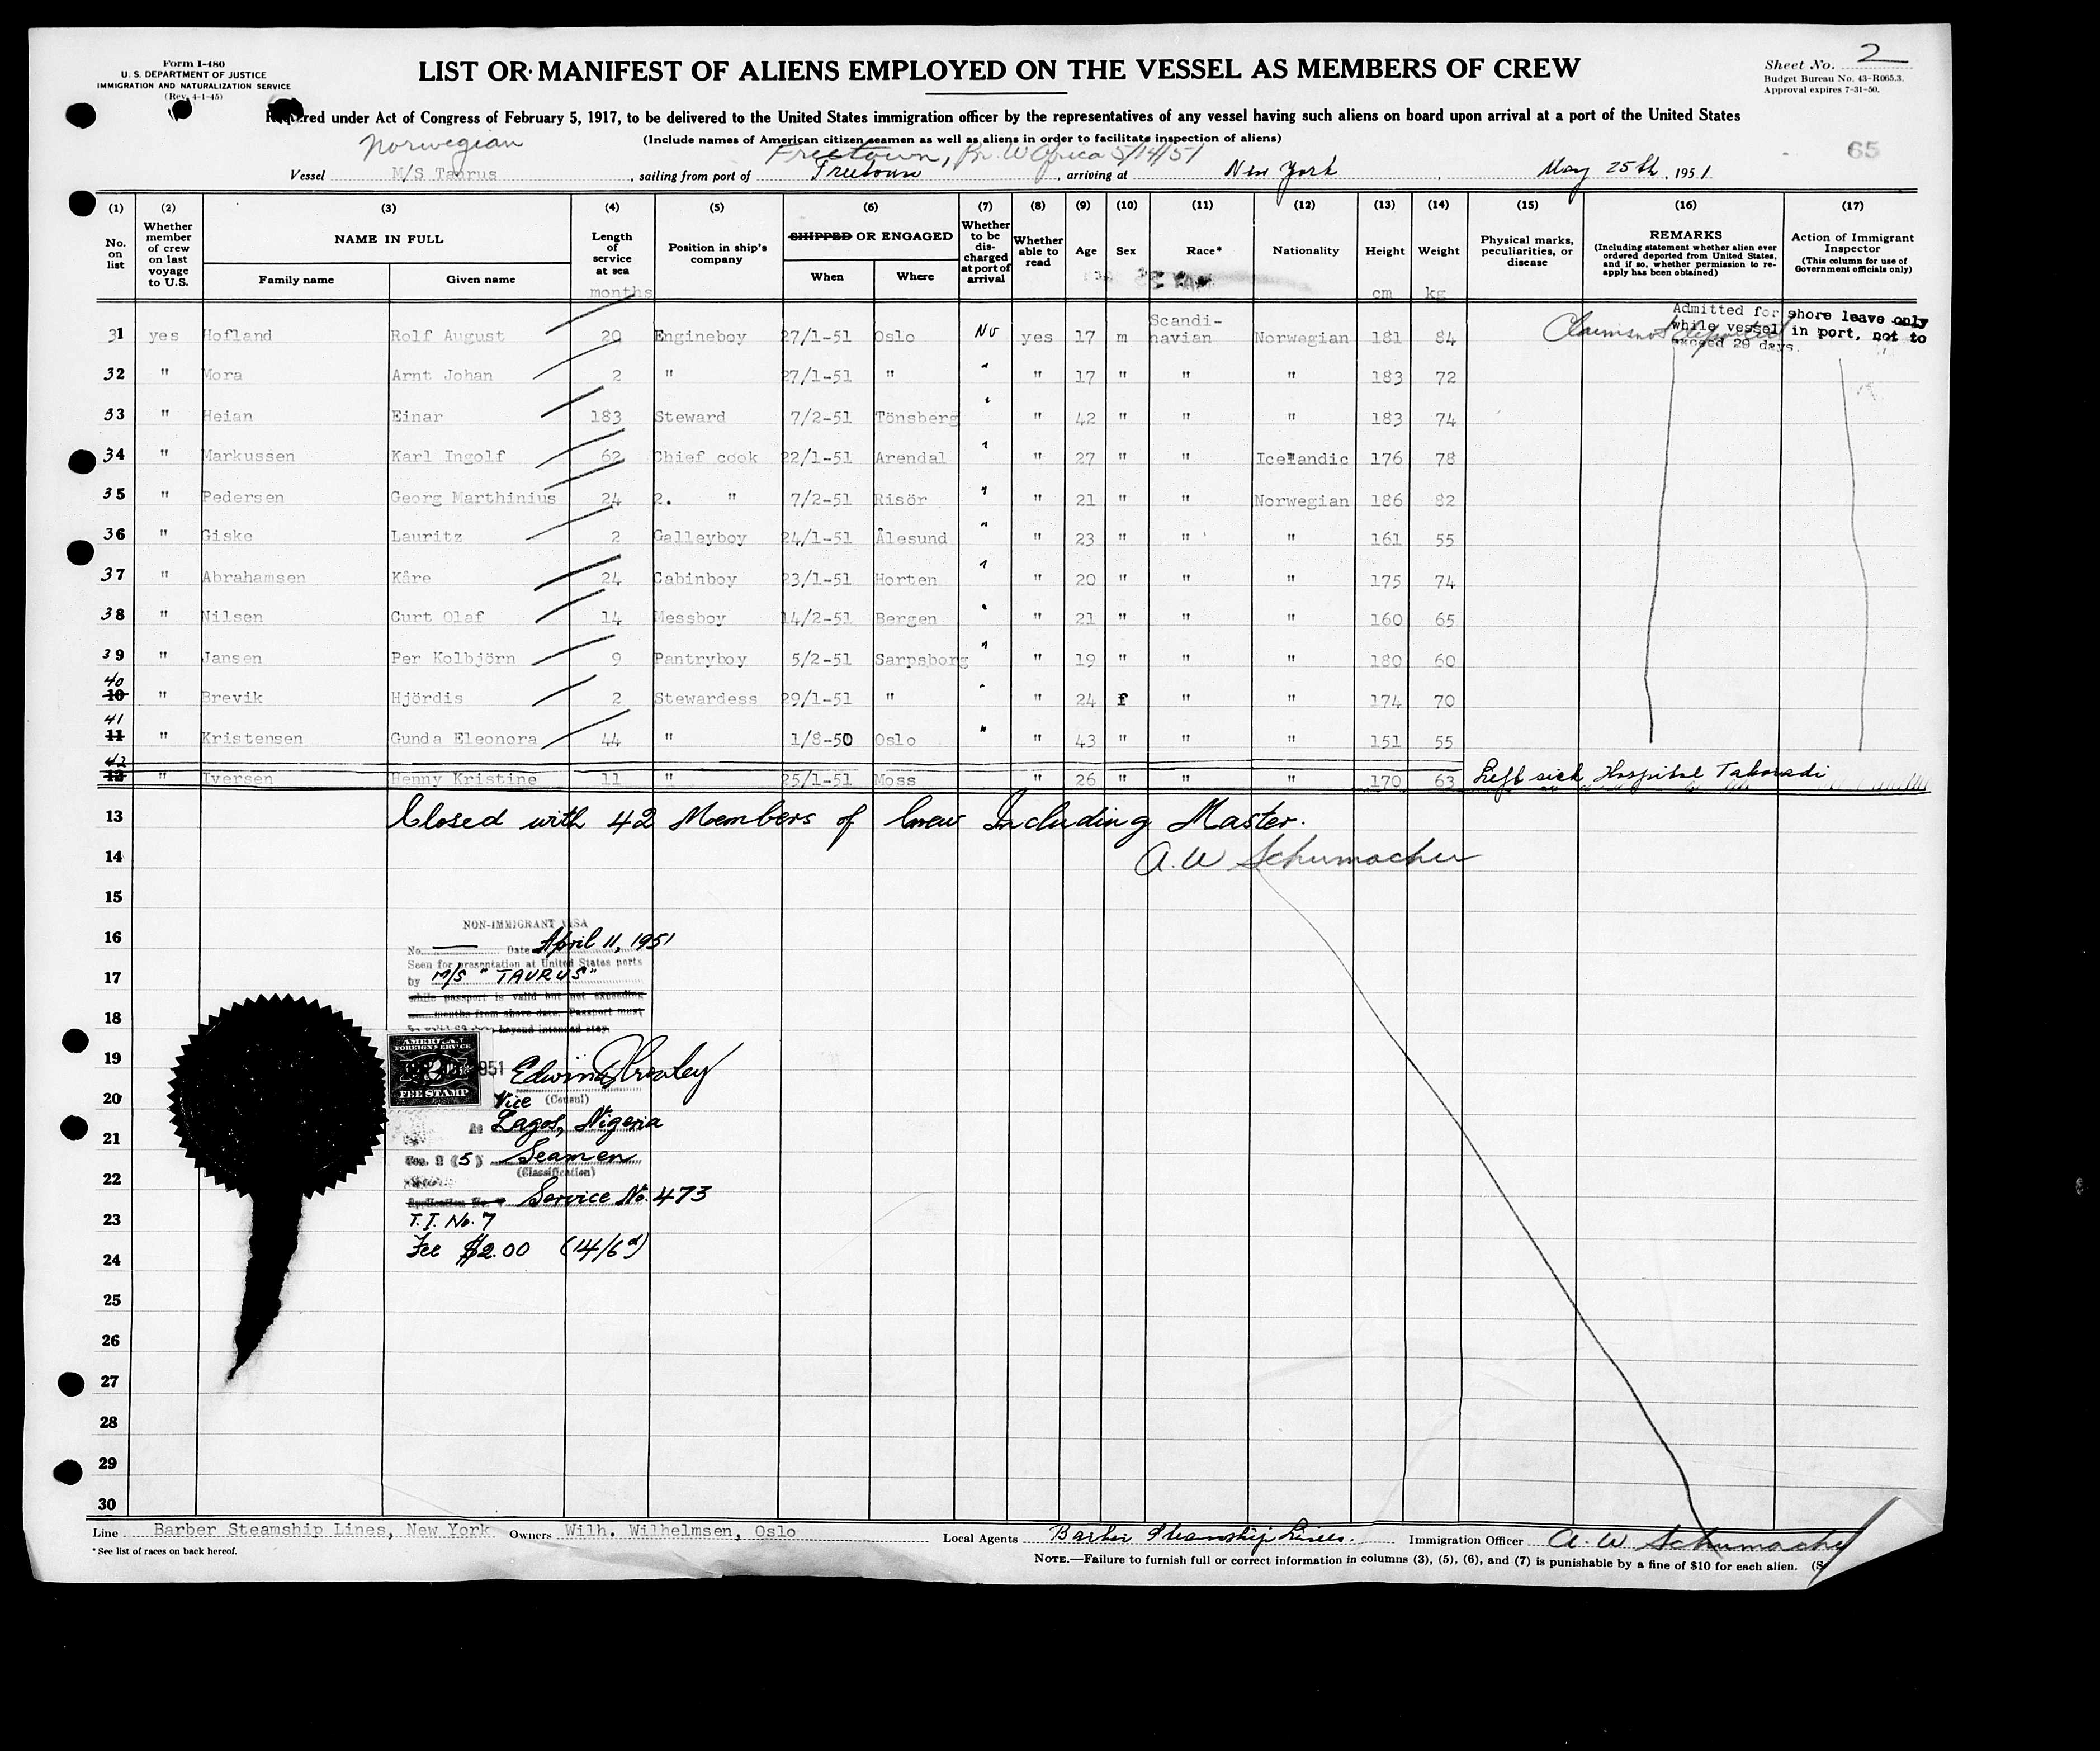 Form I-480
U. S. DEPARTMENT OF JUSTICE
IMMIGRATION AND NATURALIZATION SERVICE
(Rev. 4-1-45)
LIST OR MANIFEST OF ALIENS EMPLOYED ON THE VESSEL AS MEMBERS OF CREW
Sheet No. 2
Budget Bureau No. 43-R065.3.
Approval expires 7-31-50.
Required under Act of Congress of February 5, 1917, to be delivered to the United States immigration officer by the representatives of any vessel having such aliens on board upon arrival at a port of the United States
(Include names of American citizen seamen as well as aliens in order to facilitate inspection of aliens)
65
Norwegian Freetown, Br. W Africa 5/14/51
Vessel M/S Taurus, sailing from port of Freetown, arriving at New York, May 25th, 1951
(1) (2) (3) (4) (5) (6) (7) (8) (9) (10) (11) (12) (13) (14) (15) (16) (17)
No. on list
Whether member of crew on last voyage to U.S.
NAME IN FULL
Family name Given name
Length of service at sea
months
Position in ship's company
SHIPPED OR ENGAGED
When Where
Whether to be discharged at port of arrival
Whether able to read
Age
Sex
Race*
Nationality
Height
cm
Weight
kg
Physical marks, peculiarities, or disease
REMARKS
(Including statement whether alien ever ordered deported from United States, and if so, whether permission to reapply has been obtained)
Action of Immigrant Inspector
(This column for use of Government officials only)
Admitted for shore leave only
while vessel in port, not to
exceed 29 days.
31 yes Hofland Rolf August 20 Engineboy 27/1-51 Oslo No yes 17 m Scandi-navian Norwegian 181 84 Claims not deported
32 " Mora Arnt Johan 2 " 27/1-51 " " " 17 " " " 183 72
33 " Heian Einar 183 Steward 7/2-51 Tönsberg " " 42 " " " 183 74
34 " Markussen Karl Ingolf 62 Chief cook 22/1-51 Arendal " " 27 " " Icelandic 176 78
35 " Pedersen Georg Marthinius 24 2. " 7/2-51 Risör " " 21 " " Norwegian 186 82
36 " Giske Lauritz 2 Galleyboy 24/1-51 Ålesund " " 23 " " " 161 55
37 " Abrahamsen Kåre 24 Cabinboy 23/1-51 Horten " " 20 " " " 175 74
38 " Nilsen Curt Olaf 14 Messboy 14/2-51 Bergen " " 21 " " " 160 65
39 " Jansen Per Kolbjörn 9 Pantryboy 5/2-51 Sarpsborg " " 19 " " " 180 60
40 10 " Brevik Hjördis 2 Stewardess 29/1-51 " " " 24 f " " 174 70
41 11 " Kristensen Gunda Eleonora 44 " 1/8-50 Oslo " " 43 " " " 151 55
42 12 " Iversen Henny Kristine 11 " 25/1-51 Moss " 26 " " " 170 63 Left sick Hospital Takoradi
13 Closed with 42 Members of Crew Including Master.
14 A. W Schumacher
15
16
17
18
19
20
21
22
23
24
25
26
27
28
29
30
NON-IMMIGRANT VISA
No. — Date April 11, 1951
Seen for presentation at United States ports
by M/S "TAURUS"
while passport is valid but not exceeding
months from above date. Passport must
beyond intended stay.
AMERICAN
FOREIGN SERVICE
FEE STAMP
951
Vice (Consul)
At Lagos, Nigeria
(5) Seamen
(Classification)
Application No. Service No. 473
T.I. No. 7
Fee $2.00 (14/6d)
Line Barber Steamship Lines, New York Owners Wilh. Wilhelmsen, Oslo Local Agents Barber Steamship Lines. Immigration Officer A. W Schumacher
*See list of races on back hereof.
NOTE.—Failure to furnish full or correct information in columns (3), (5), (6), and (7) is punishable by a fine of $10 for each alien.